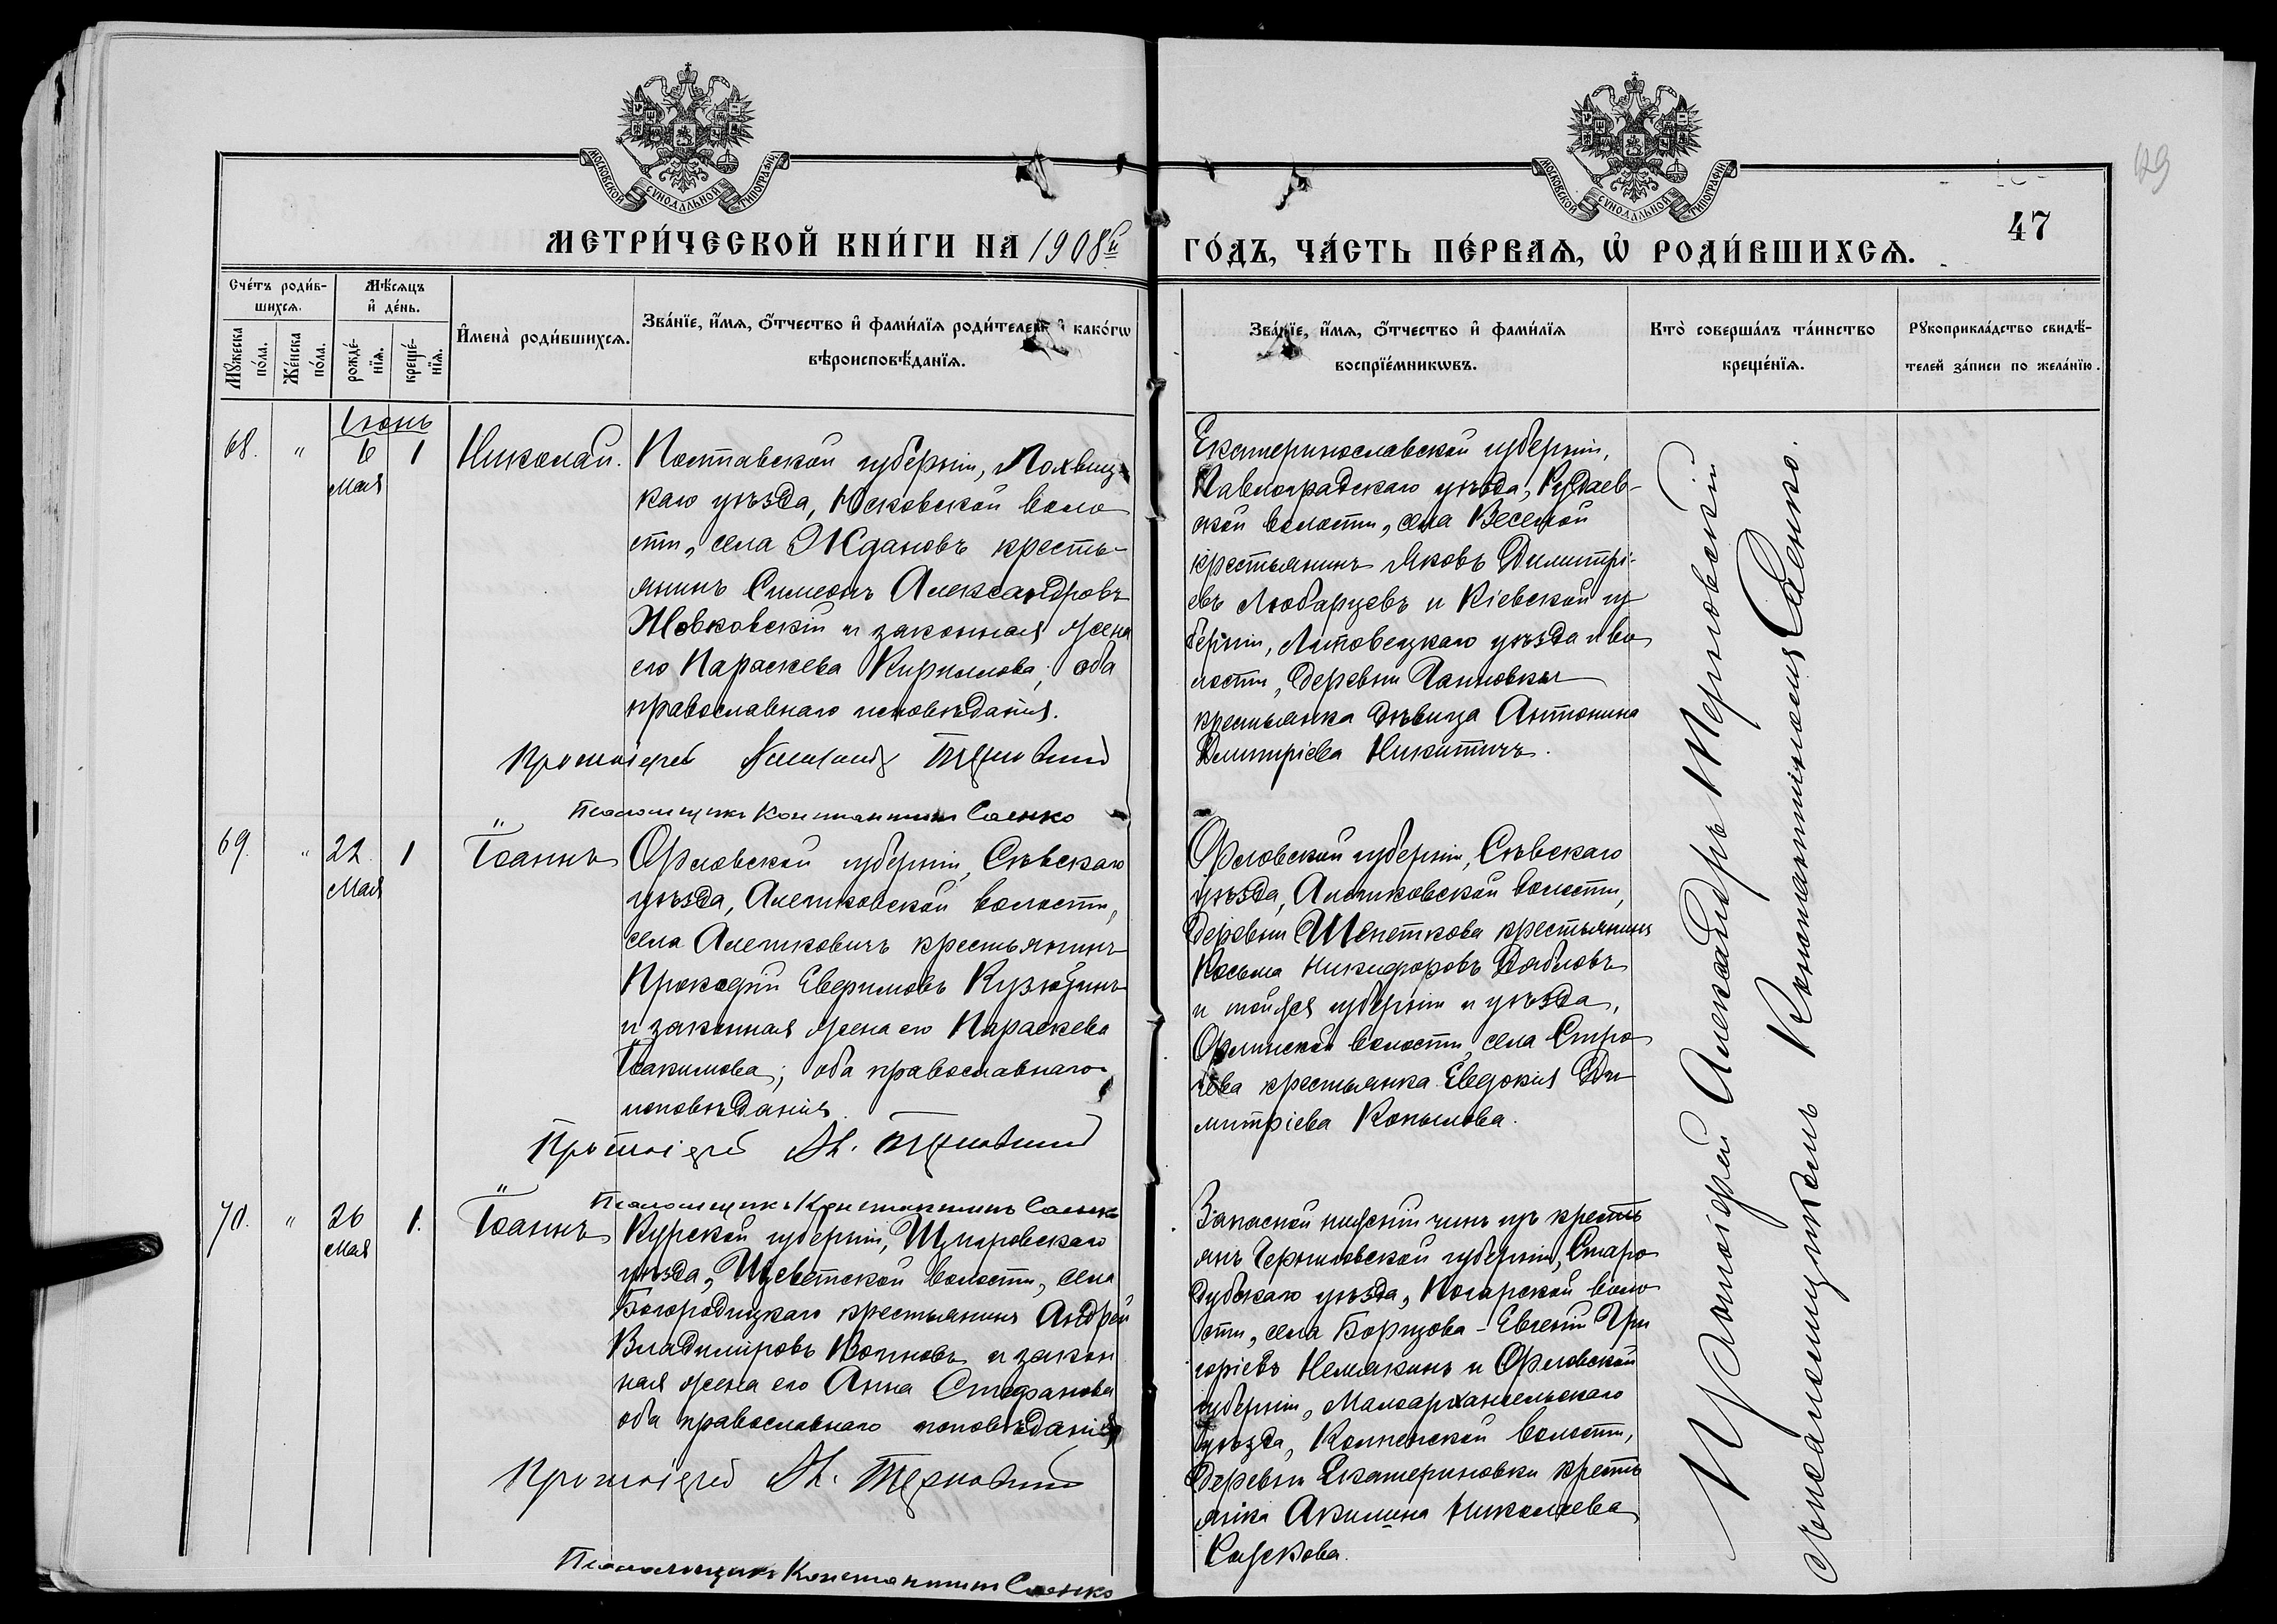 МОСКОВСКОЙ СѴНОДАЛЬНОЙ ТИПОГРАФІИ
МОСКОВСКОЙ СѴНОДАЛЬНОЙ ТИПОГРАФІИ
47
МЕТРИ́ЧЕСКОЙ КНИ́ГИ НА 1908й ГО́ДЪ, ЧА́СТЬ ПЕ́РВАѦ, Ѡ҆ РОДИ́ВШИХСѦ.
Сче́тъ роди́в-
шихсѧ.
Мꙋ́жеска по́ла.
Же́нска по́ла.
Мѣ́сѧцъ
и҆ де́нь.
рожде́-
нїѧ.
креще́-
нїѧ.
И҆мена̀ роди́вшихсѧ.
Зва́нїе, и҆́мѧ, ѻ҆́тчество и҆ фами́лїѧ роди́телей и҆ како́гѡ
вѣроисповѣ́данїѧ.
Зва́нїе, и҆́мѧ, ѻ҆́тчество и҆ фами́лїѧ
воспрїе́мникѡвъ.
Кто̀ соверша́лъ та́инство
креще́нїѧ.
Рꙋкоприкла́дство свидѣ́-
телей за́писи по жела́нїю.
Іюнь
68. " 6 1 Николай.
Мая
Полтавской губерніи, Лохвиц-
каго уѣзда, Юсковской воло
сти, села Ждановъ кресть-
янинъ Симеонъ Александровъ
Жовковскій и законная жена
его Параскева Кириллова, оба
православнаго исповѣданія.
Протоіерей Александръ Терновскій
Псаломщикъ Константинъ Саенко
Екатеринославской губерніи,
Павлоградскаго уѣзда, Рудаев-
ской волости, села Веселой
крестьянинъ Яковъ Димитрі-
евъ Любарцевъ и Кіевской гу
берніи, Липовецкаго уѣзда и во
лости, деревни
крестьянка дѣвица Антонина
Димитріева Никитичъ.
69. " 22 1 Іоаннъ
Мая
Орловской губерніи, Сѣвскаго
уѣзда, Алешковской волости,
села Алешковичъ крестьянинъ
Прокофій Евфимовъ
и законная жена его Параскева
Іоакимова; оба православнаго
исповѣданія.
Протоіерей Ал. Терновскій
Псаломщикъ Константинъ Саенко
Орловской губерніи, Сѣвскаго
уѣзда, Алешковской волости,
деревни крестьянинъ
Косьма Никифоровъ
и той же губерніи и уѣзда,
волости, села
крестьянка Евдокія Ди
митріева Копылова.
70. " 26 1. Іоаннъ
Мая
Курской губерніи, Щигровскаго
уѣзда, волости, села
Богородицкаго крестьянинъ Андрей
Владиміровъ и закон
ная жена его Анна Стефанова
оба православнаго исповѣданія
Протоіерей Ал. Терновскій
Псаломщикъ Константинъ Саенко
Запасной нижній чинъ изъ кресть
янъ Черниговской губерніи, Старо
дубскаго уѣзда, Погарской воло
сти, села Борщова - Евгеній Гри
горіевъ и Орловской
губерніи, Малоархангельскаго
уѣзда, волости,
деревни Екатериновки кресть
янка Акилина Николаева
Протоіерей Александръ Терновскій
Псаломщикъ Константинъ Саенко.